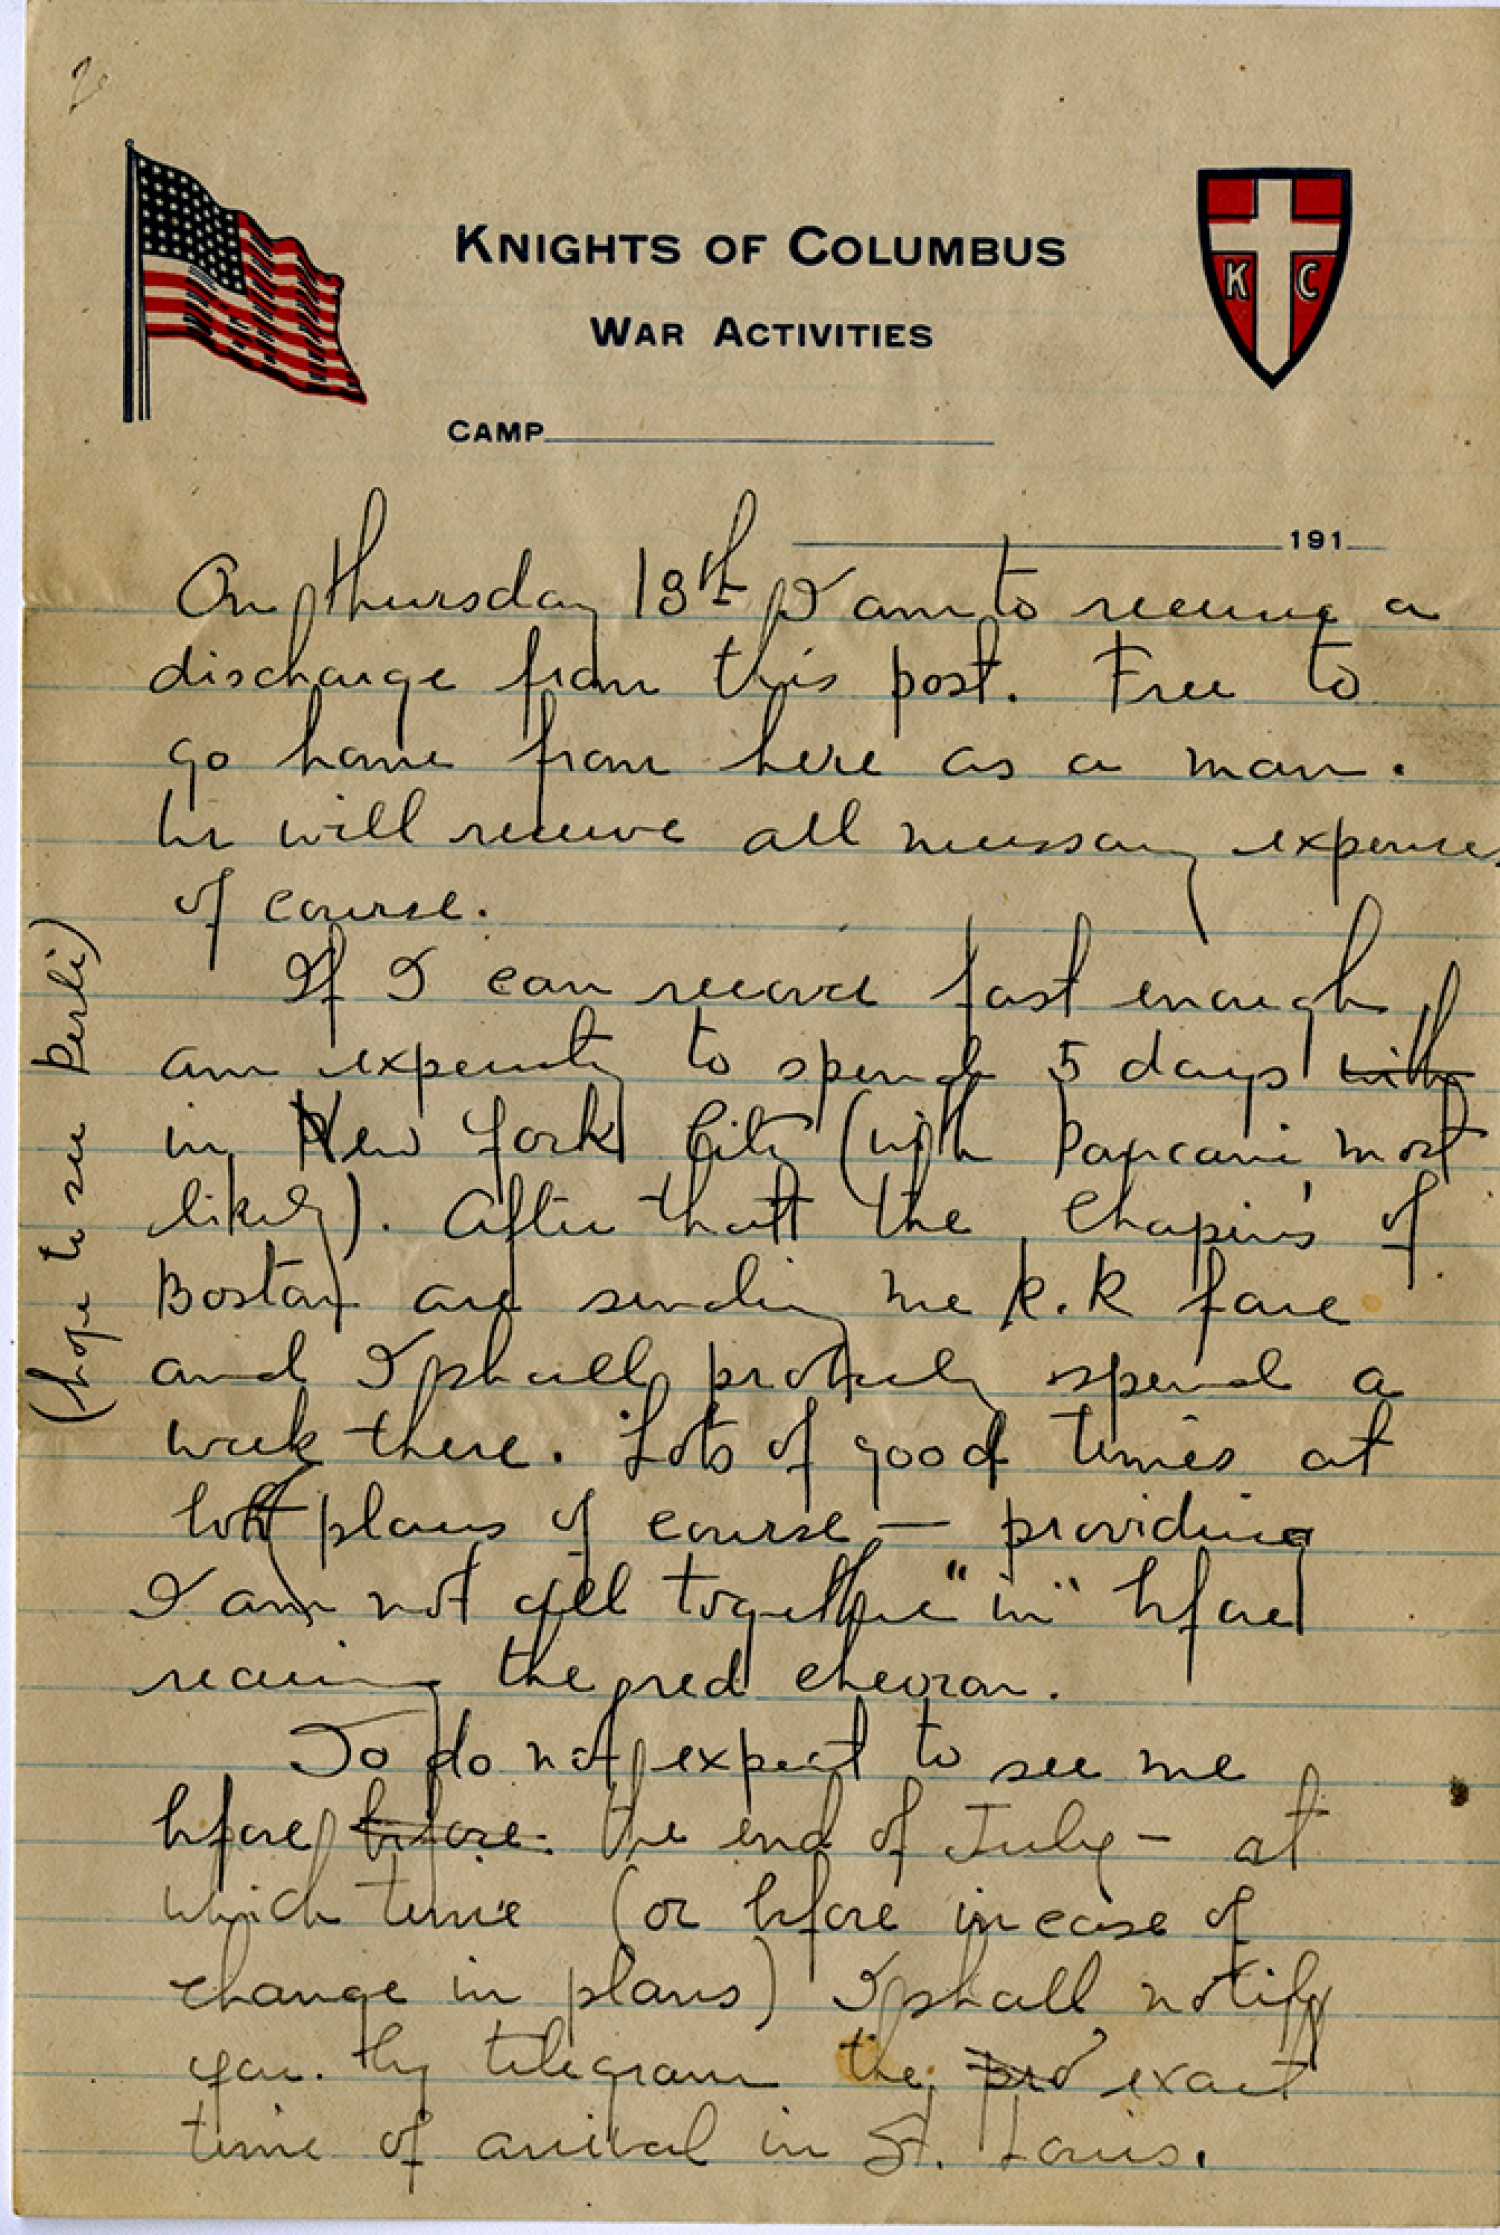 2
KNIGHTS OF COLUMBUS
WAR ACTIVITIES
K C
CAMP
191
On thursday 18th I am to receive a
discharge from this post. Free to
go home from here as a man.
he will receive all necessary expenses
of course.
If I can recover fast enough
am expecting to spend 5 days with
in New York City (with most
likely). After that the Chapin's of
Boston are sending me R.R fare
and I shall probably spend a
week there. Lots of good times at
both plans of course — providing
I am not all together "in" before
receiving the red chevron.
To do not expect to see me
before before. the end of July — at
which time (or before in case of
change in plans) I shall notify
you. by telegram the exact
time of arrival in St. Louis.
(hope to see Perli)